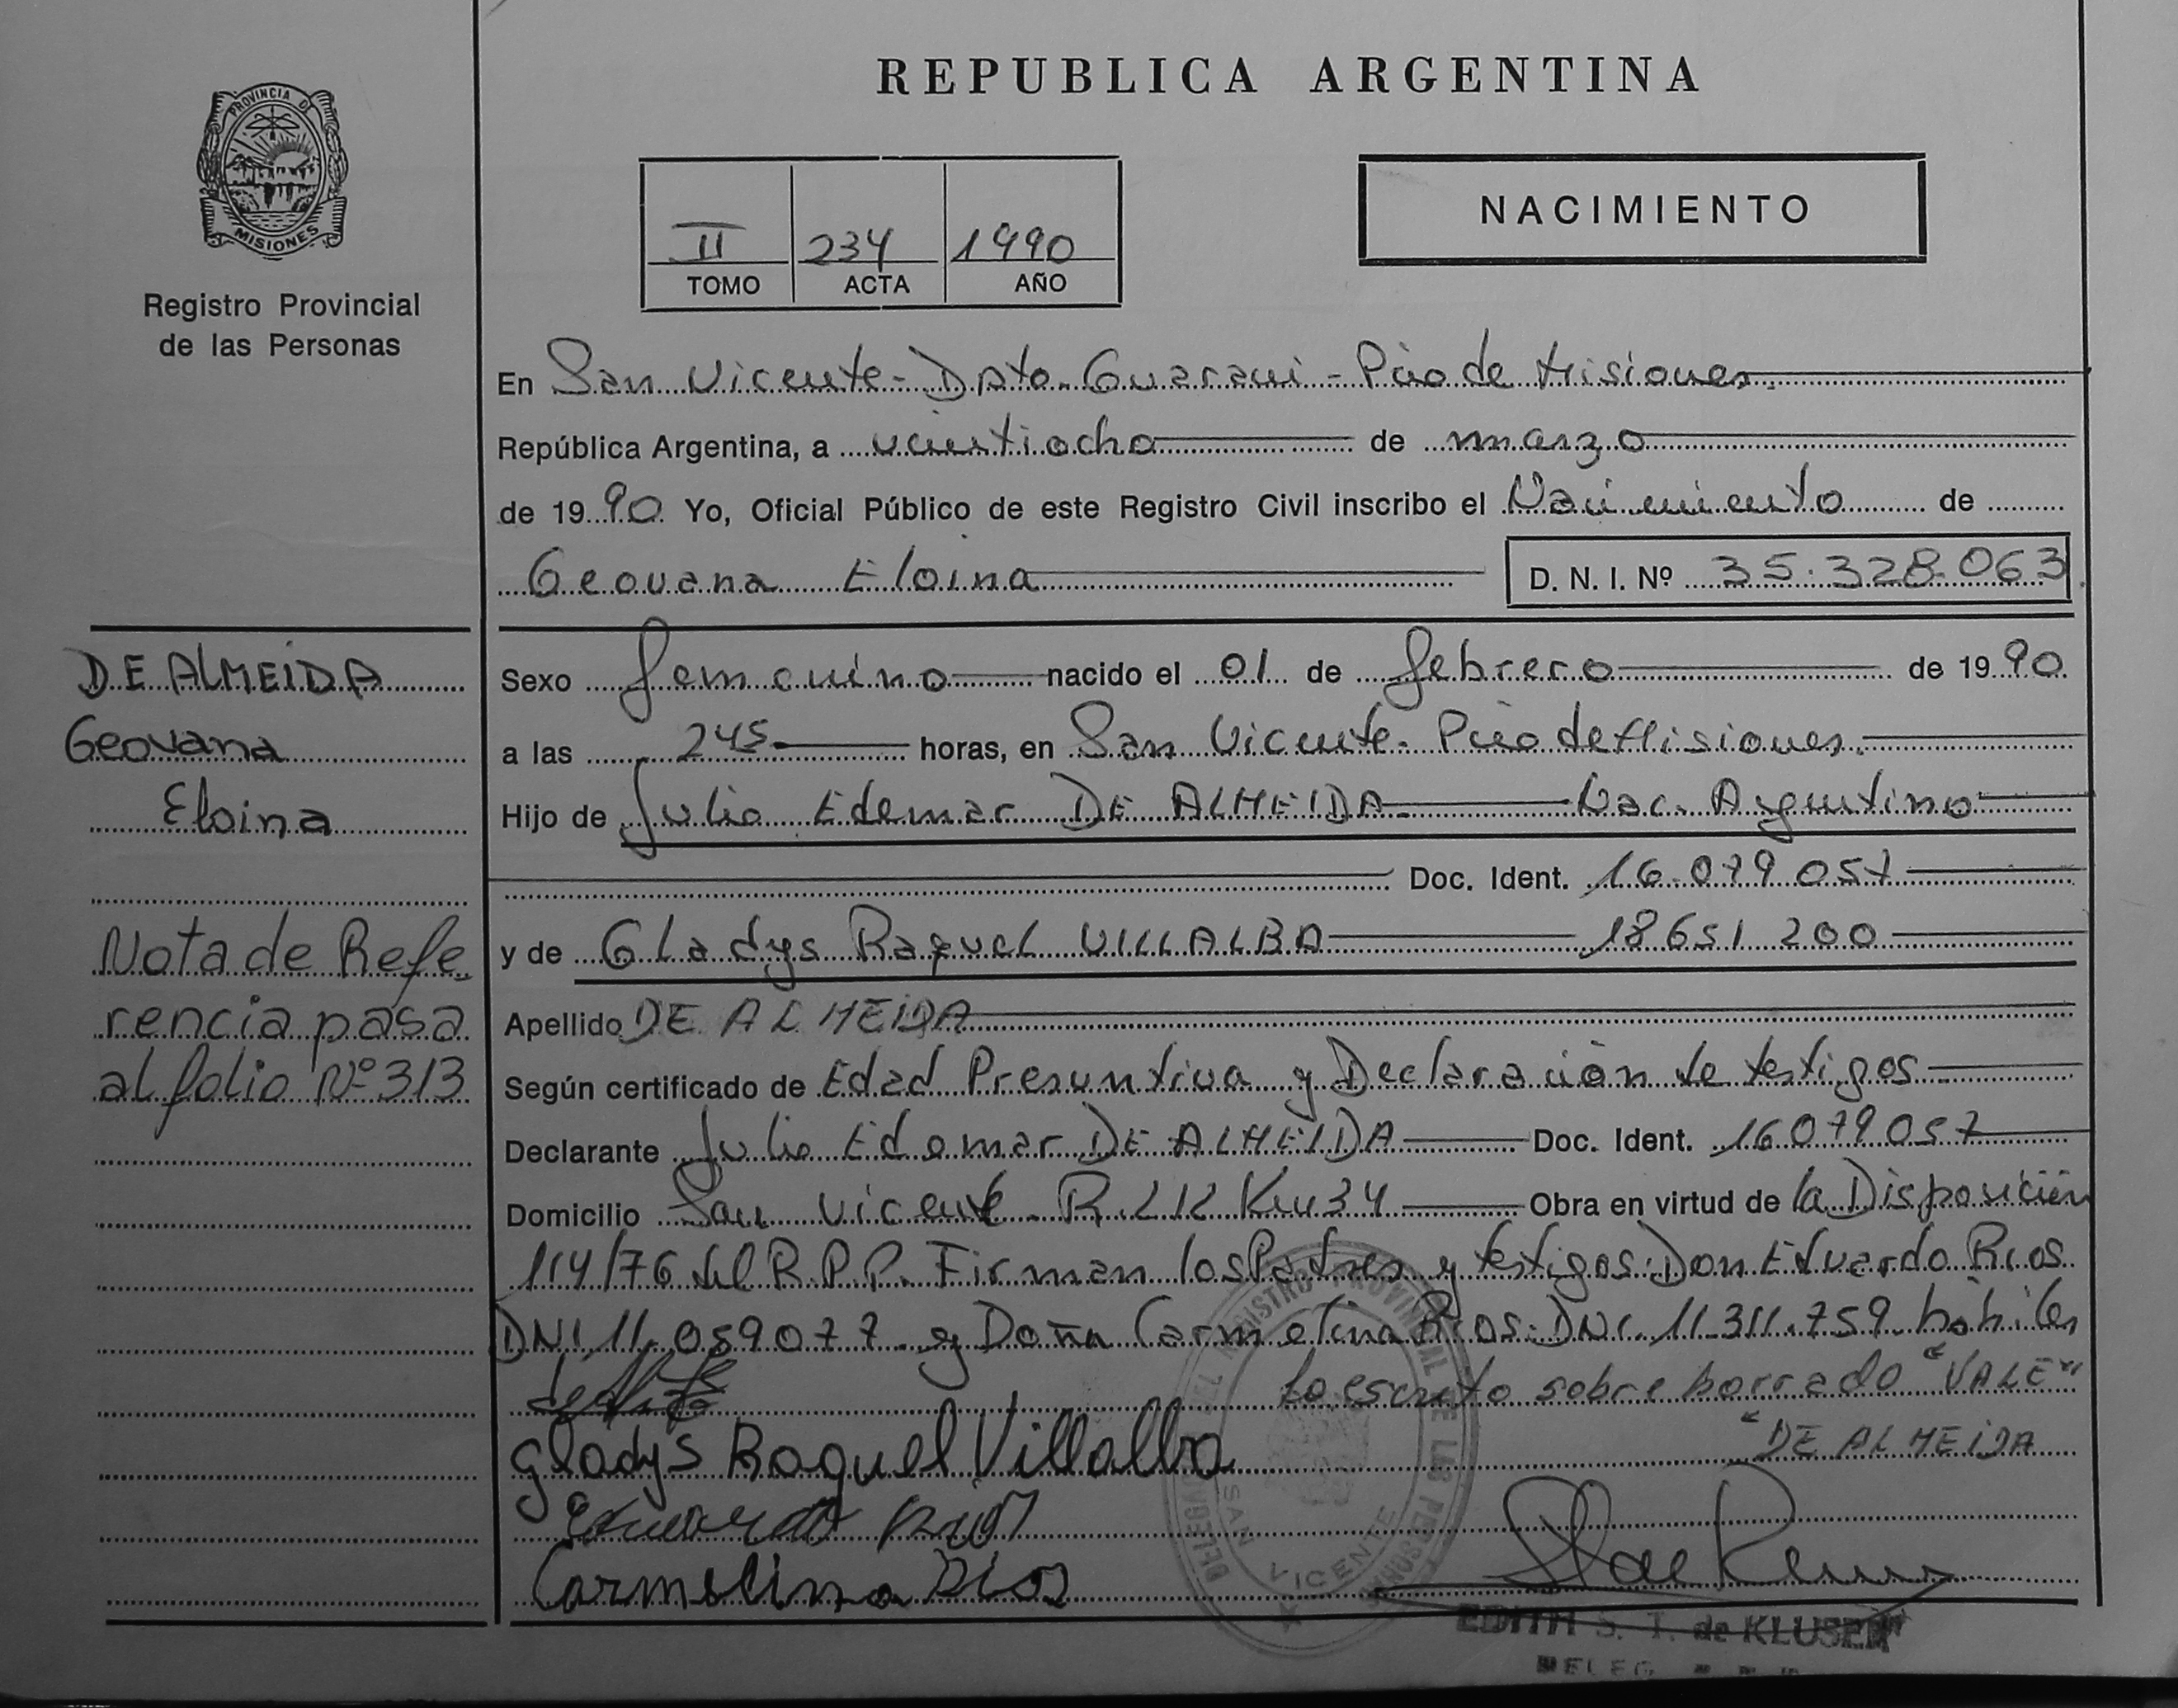 REPUBLICA ARGENTINA
PROVINCIA DE
MISIONES
Registro Provincial
de las Personas
II 234 1990
TOMO ACTA AÑO
NACIMIENTO
En San Vicente - Dpto Guarani - Pcio de Misiones
República Argentina, a veintiocho de marzo
de 1990 Yo, Oficial Público de este Registro Civil inscribo el Nacimiento de
Geovana Eloina D. N. I. Nº 35.328.063
DE ALMEIDA
Geovana
Eloina
Nota de Refe
rencia pasa
al folio Nº 313
Sexo femenino nacido el 01 de febrero de 1990
a las 245 horas, en San Vicente - Pcio de Misiones.
Hijo de Julio Edemar DE ALMEIDA Nac. Argentino
Doc. Ident. 16.079 057
y de Gladys Raquel VILLALBA 18651 200
Apellido DE ALMEIDA
Según certificado de Edad Presuntiva y Declaración de testigos
Declarante Julio Edemar DE ALMEIDA Doc. Ident. 16079057
Domicilio San Vicente R. Km 34 Obra en virtud de la Disposición
114/76 del R.P.P. Firman los Padres y testigos: Don Eduardo Rios
DNI 11.059077 y Doña Carmelina Rios: DNI. 11.311.759 hábiles
lo escrito sobre borrado "VALE"
"DE ALMEIDA
Gladys Raquel Villalba
Eduardo Rios
Carmelina Rios
DELEGACION DEL REGISTRO PROVINCIAL DE LAS PERSONAS
SAN VICENTE
EDITH S. T. de KLUSER
DELEG.